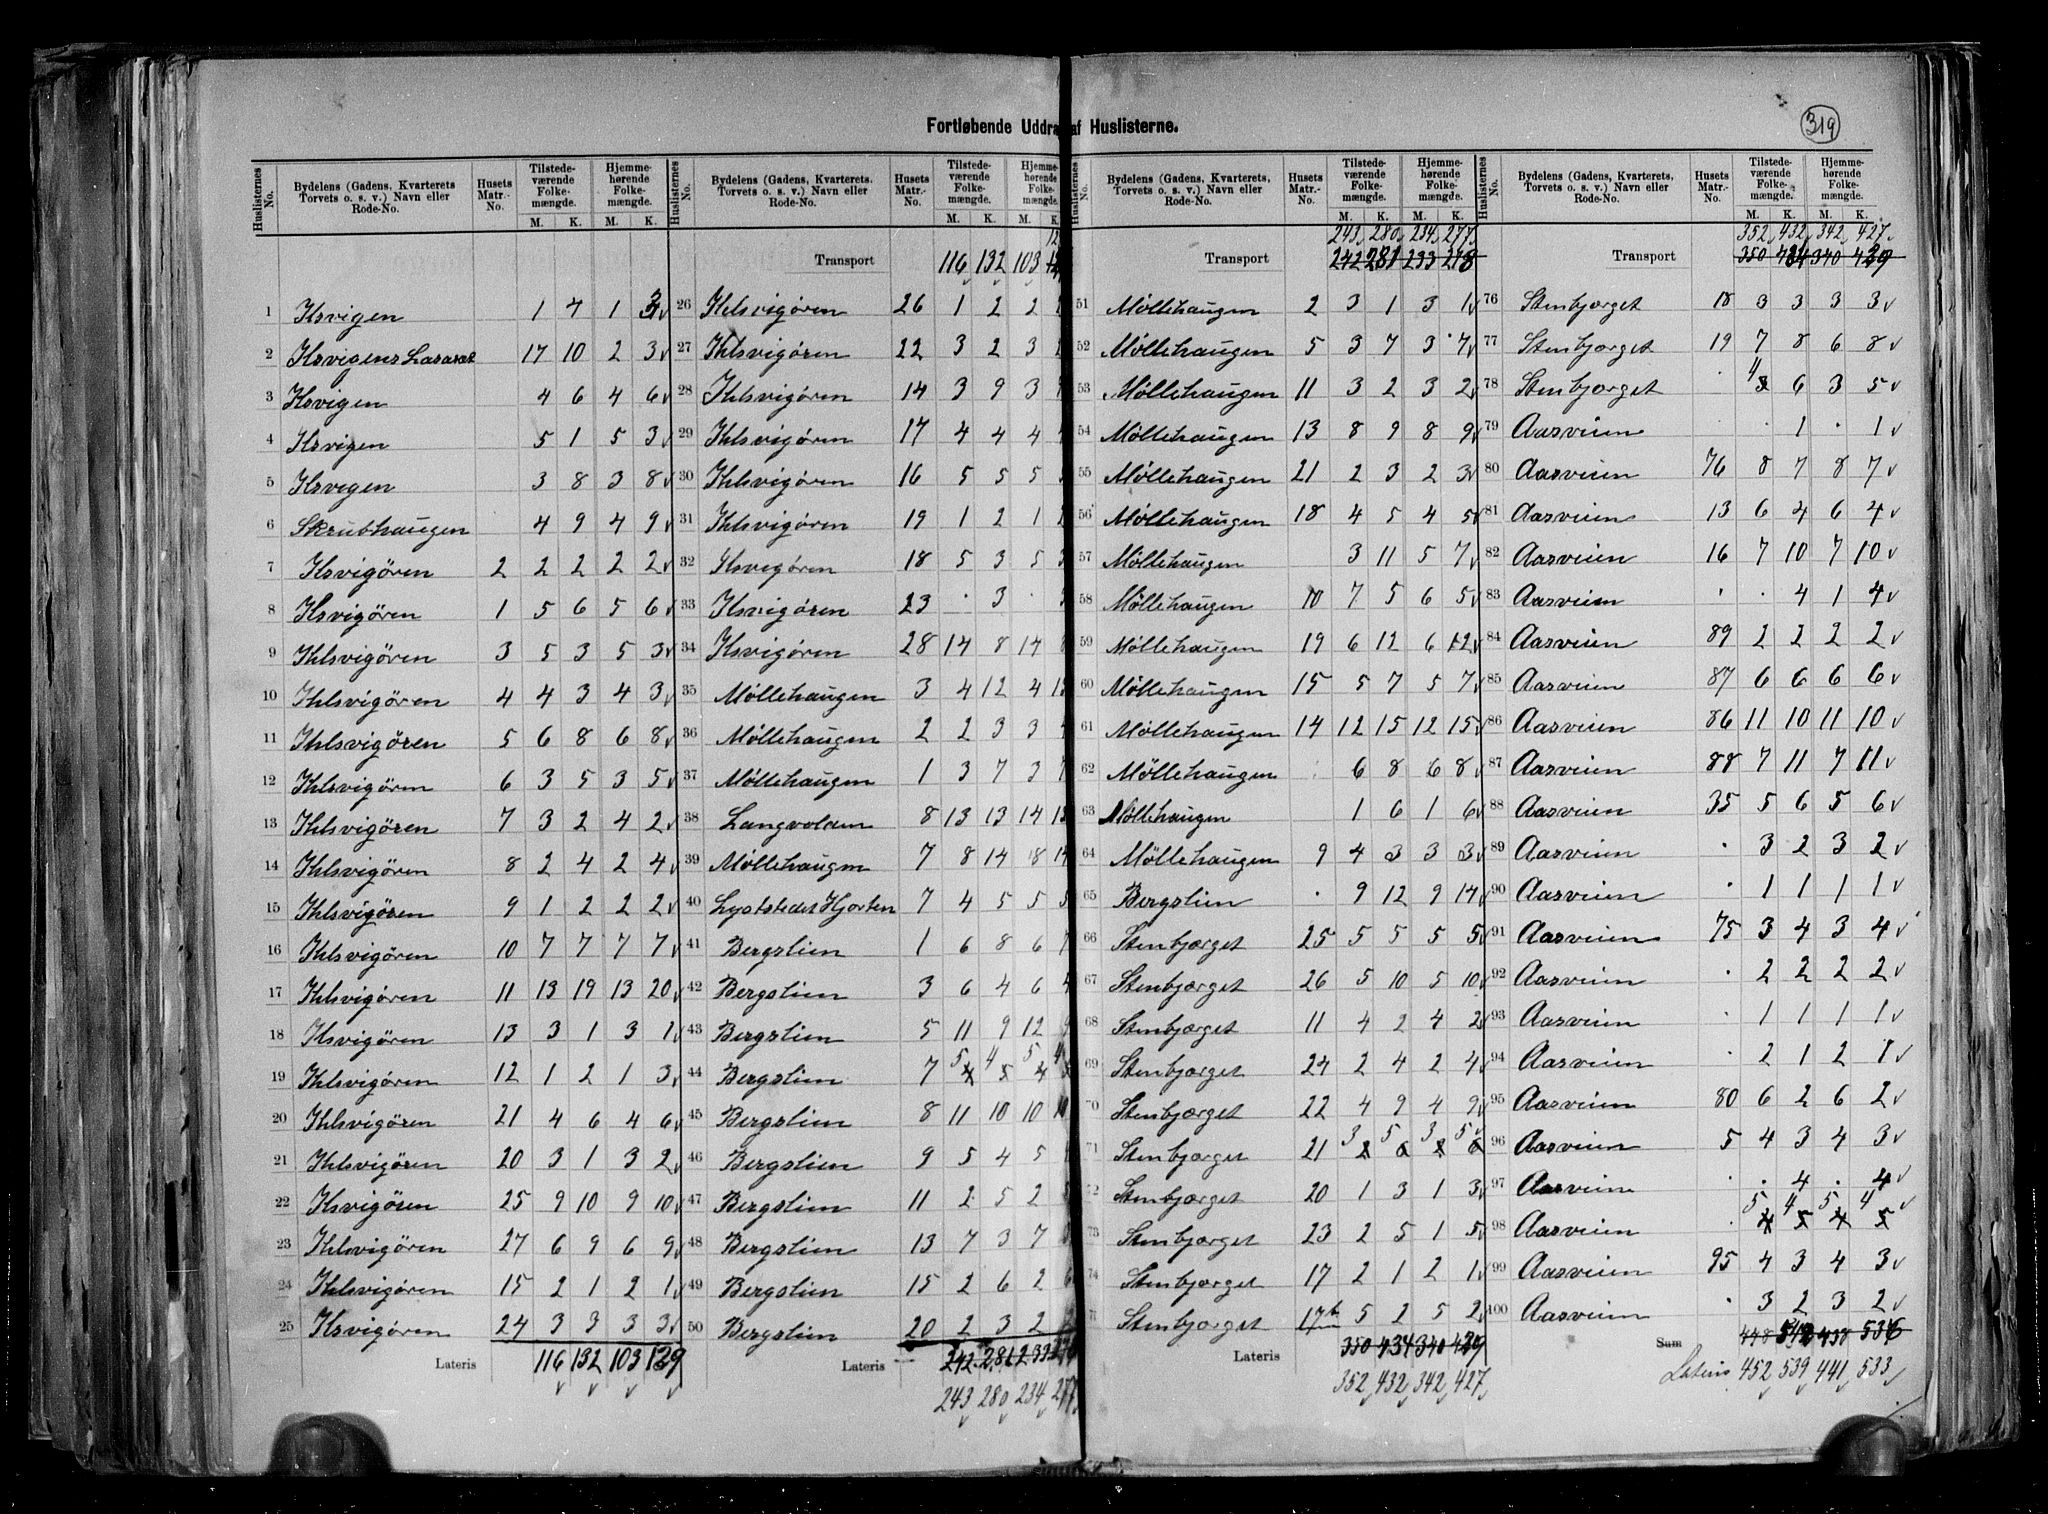 Fortløbende Uddra af Huslisterne.
319
Huslisternes No. | Bydelens (Gadens, Kvarterets, Torvets o. s. v.) Navn eller Rode-No. | Husets Matr.-No. | Tilstedeværende Folkemængde. M. K. | Hjemmehørende Folkemængde. M. K.
1 Ilsvigen 1 7 1 3
2 Ilsvigens Lasaret 17 10 2 3
3 Ilsvigen 4 6 4 6
4 Ilsvigen 5 1 5 3
5 Ilsvigen 3 8 3 8
6 Skrubhaugen 4 9 4 9
7 Ilsvigören 2 2 2 2 2
8 Ilsvigören 1 5 6 5 6
9 Ihlsvigören 3 5 3 5 3
10 Ihlsvigören 4 4 3 4 3
11 Ihlsvigören 5 6 8 6 8
12 Ihlsvigören 6 3 5 3 5
13 Ihlsvigören 7 3 2 4 2
14 Ihlsvigören 8 2 4 2 4
15 Ihlsvigören 9 1 2 2 2
16 Ihlsvigören 10 7 7 7 7
17 Ihlsvigören 11 13 19 13 20
18 Ilsvigören 13 3 1 3 1
19 Ihlsvigören 12 1 2 1 3
20 Ihlsvigören 21 4 6 4 6
21 Ihlsvigören 20 3 1 3 2
22 Ilsvigören 25 9 10 9 10
23 Ihlsvigören 27 6 9 6 9
24 Ihlsvigören 15 2 1 2 1
25 Ilsvigören 24 3 3 3 3
Lateris 116 132 103 129
Huslisternes No. | Bydelens (Gadens, Kvarterets, Torvets o. s. v.) Navn eller Rode-No. | Husets Matr.-No. | Tilstedeværende Folkemængde. M. K. | Hjemmehørende Folkemængde. M. K.
Transport 116 132 103
26 Ihlsvigören 26 1 2 2
27 Ihlsvigören 22 3 2 3
28 Ihlsvigören 14 3 9 3
29 Ihlsvigören 17 4 4 4
30 Ihlsvigören 16 5 5 5
31 Ihlsvigören 19 1 2 1
32 Ilsvigören 18 5 3 5
33 Ilsvigören 23 . 3 .
34 Ilsvigören 28 14 8 14
35 Møllehaugen 3 4 12 4
36 Møllehaugen 2 2 3 3
37 Møllehaugen 1 3 7 3
38 Langvolden 8 13 13 14
39 Møllehaugen 7 8 14 8 14
40 Lyststedet Hjorten 7 4 5 5 5
41 Bergslien 1 6 8 6 7
42 Bergslien 3 6 4 6
43 Bergslien 5 11 9 12
44 Bergslien 7 5 4 5 4
45 Bergslien 8 11 10 10 10
46 Bergslien 9 5 4 5
47 Bergslien 11 2 5 2
48 Bergslien 13 7 3 7
49 Bergslien 15 2 6 2 6
50 Bergslien 20 2 3 2
Lateris 242 281 233
243 280 234 277
Huslisternes No. | Bydelens (Gadens, Kvarterets, Torvets o. s. v.) Navn eller Rode-No. | Husets Matr.-No. | Tilstedeværende Folkemængde. M. K. | Hjemmehørende Folkemængde. M. K.
243 280 234 277
Transport 242 281 233 278
51 Møllehaugen 2 3 1 3 1
52 Møllehaugen 5 3 7 3 7
53 Møllehaugen 11 3 2 3 2
54 Møllehaugen 13 8 9 8 9
55 Møllehaugen 21 2 3 2 3
56 Møllehaugen 18 4 5 4 5
57 Møllehaugen 3 11 5 7
58 Møllehaugen 10 7 5 6 5
59 Møllehaugen 19 6 12 6 12
60 Møllehaugen 15 5 7 5 7
61 Møllehaugen 14 12 15 12 15
62 Møllehaugen . 6 8 6 8
63 Møllehaugen 1 6 1 6
64 Møllehaugen 9 4 3 3 3
65 Bergslien . 9 12 9 14
66 Stenbjærget 25 5 5 5 5
67 Stenbjærget 26 5 10 5 10
68 Stenbjærget 11 4 2 4 2
69 Stenbjærget 24 2 4 2 4
70 Stenbjærget 22 4 9 4 9
71 Stenbjærget 21 3 5 3 5
72 Stenbjærget 20 1 3 1 3
73 Stenbjærget 23 2 5 1 5
74 Stenbjærget 17 2 1 2 1
75 Stenbjærget 17b 5 2 5 2
Lateris 350 434 340 429
352 432 342 427
Huslisternes No. | Bydelens (Gadens, Kvarterets, Torvets o. s. v.) Navn eller Rode-No. | Husets Matr.-No. | Tilstedeværende Folkemængde. M. K. | Hjemmehørende Folkemængde. M. K.
352 432 342 427
Transport 350 434 340 429
76 Stenbjærget 18 3 3 3 3
77 Stenbjærget 19 7 8 6 8
78 Stenbjærget . 4 6 3 5
79 Aasveien . . 1 . 1
80 Aasveien 76 8 7 8 7
81 Aasveien 13 6 4 6 4
82 Aasveien 16 7 10 7 10
83 Aasveien . . 4 1 4
84 Aasveien 89 2 2 2 2
85 Aasveien 87 6 6 6 6
86 Aasveien 86 11 10 11 10
87 Aasveien 88 7 11 7 11
88 Aasveien 35 5 6 5 6
89 Aasveien . 3 2 3 2
90 Aasveien . 1 1 1 1
91 Aasveien 75 3 4 3 4
92 Aasveien . 2 2 2 2
93 Aasveien . 1 1 1 1
94 Aasveien . 2 1 2 1
95 Aasveien 80 6 2 6 2
96 Aasveien 5 4 3 4 3
97 Aasveien . . 4 . 4
98 Aasveien . 5 4 5 4
99 Aasveien 95 4 3 4 3
100 Aasveien . 3 2 3 2
Sum 448 542 438 536
Lateris 452 539 441 533